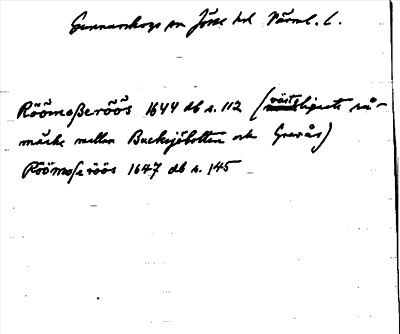 Gunnarskogs sn Jösse hd Värml. l.
Röömoßeröös 1644 db s. 112 (västligaste rå-
märke mellan Bucksjöbotten och Gravås)
Röömoſeröös 1647 db s. 145